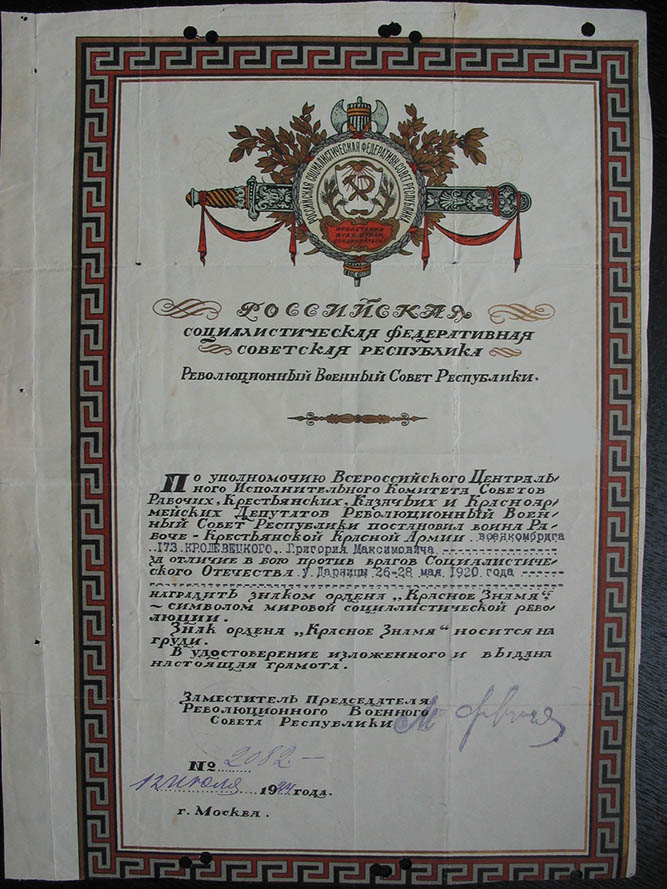 РОССИЙСКАЯ СОЦИАЛИСТИЧЕСКАЯ ФЕДЕРАТИВН. СОВЕТ. РЕСПУБЛИКА
ПРОЛЕТАРИИ
ВСЕХ СТРАН
СОЕДИНЯЙТЕСЬ
РОССИЙСКАЯ
СОЦИАЛИСТИЧЕСКАЯ ФЕДЕРАТИВНАЯ
СОВЕТСКАЯ РЕСПУБЛИКА
РЕВОЛЮЦИОННЫЙ ВОЕННЫЙ СОВЕТ РЕСПУБЛИКИ.
По уполномочию Всероссийского Централь-
ного Исполнительного Комитета Советов
Рабочих, Крестьянских, Казачьих и Красноар-
мейских Депутатов Революционный Воен-
ный Совет Республики постановил воина Ра-
боче-Крестьянской Красной Армии. военкомбрига
..173. КРОЛЕВЕЦКОГО, Григория Максимовича.
за отличие в бою против врагов Социалистиче-
ского Отечества у Дарницы 26-28 мая 1920 года
наградить знаком ордена „Красное Знамя“:
~ символом мировой социалистической рево-
люции.
Знак ордена „Красное Знамя“ носится на
груди.
В удостоверение изложенного и выдана
настоящая грамота.
Заместитель Председателя
Революционного Военного
Совета Республики
№ 2082.-
12 июля 1924 года.
г. Москва.